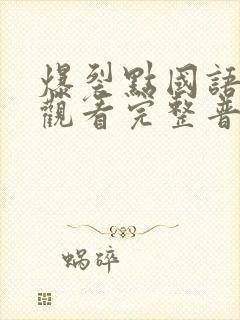 爆裂點國語
觀看完整普
蝸碎